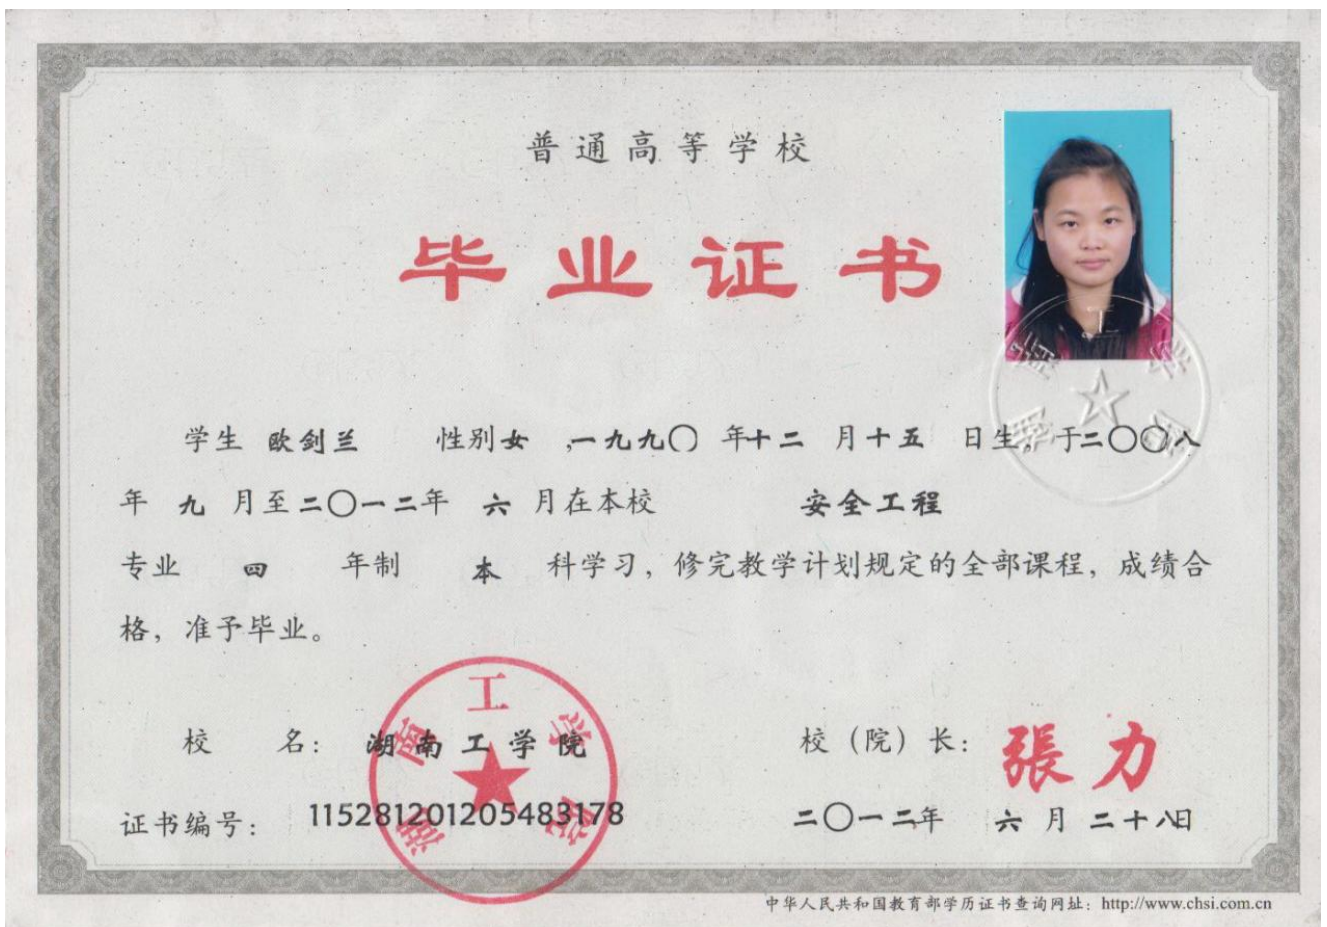 普通高等学校
毕业证书
学生 欧剑兰 性别 女 ,一九九〇 年 十二 月 十五 日生,于二〇〇八
年 九 月至二〇一二年 六 月在本校 安全工程
专业 四 年制 本 科学习，修完教学计划规定的全部课程，成绩合
格，准予毕业。
校 名： 湖南工学院
校（院）长： 張力
湖南工学院
湖南工学院
证书编号： 115281201205483178
二〇一二年 六 月 二十八日
中华人民共和国教育部学历证书查询网址：http://www.chsi.com.cn